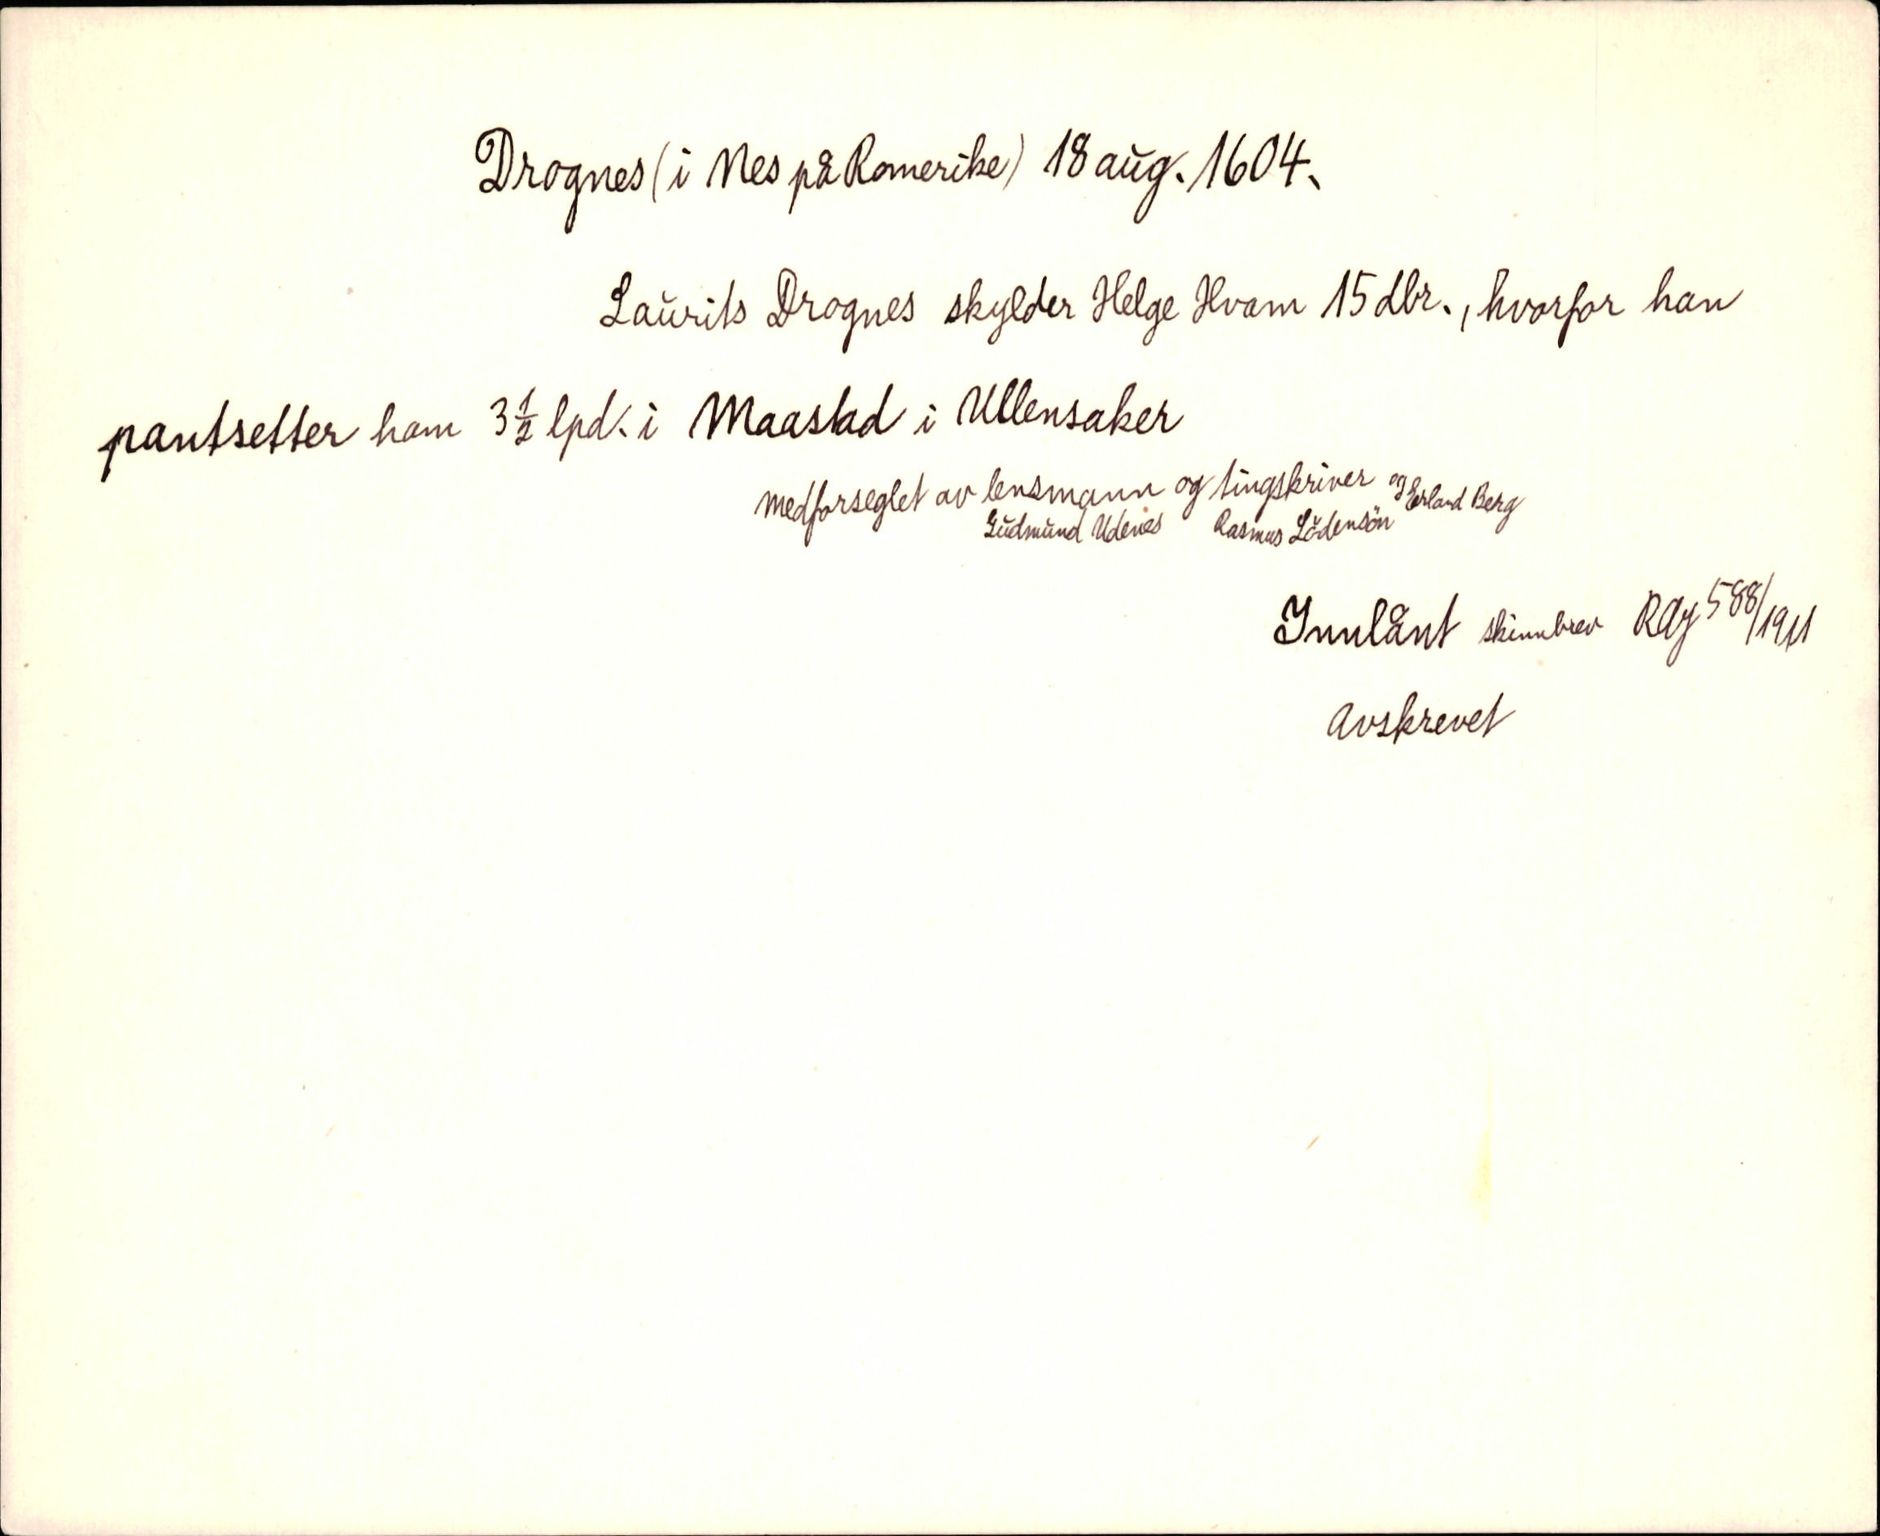 Drognes (i Nes på Romerike) 18 aug. 1604.
Laurits Drognes skylder Helge Hvam 15 dlr., hvorfor han
pantsetter ham 3 ½ lpd. i Maastad i Ullensaker
medforseglet av lensmann og tingskriver og Erland Berg
Gudmund Udenes Rasmus Lödensön
Innlånt skinnbrev RAJ 588/1911
Avskrevet